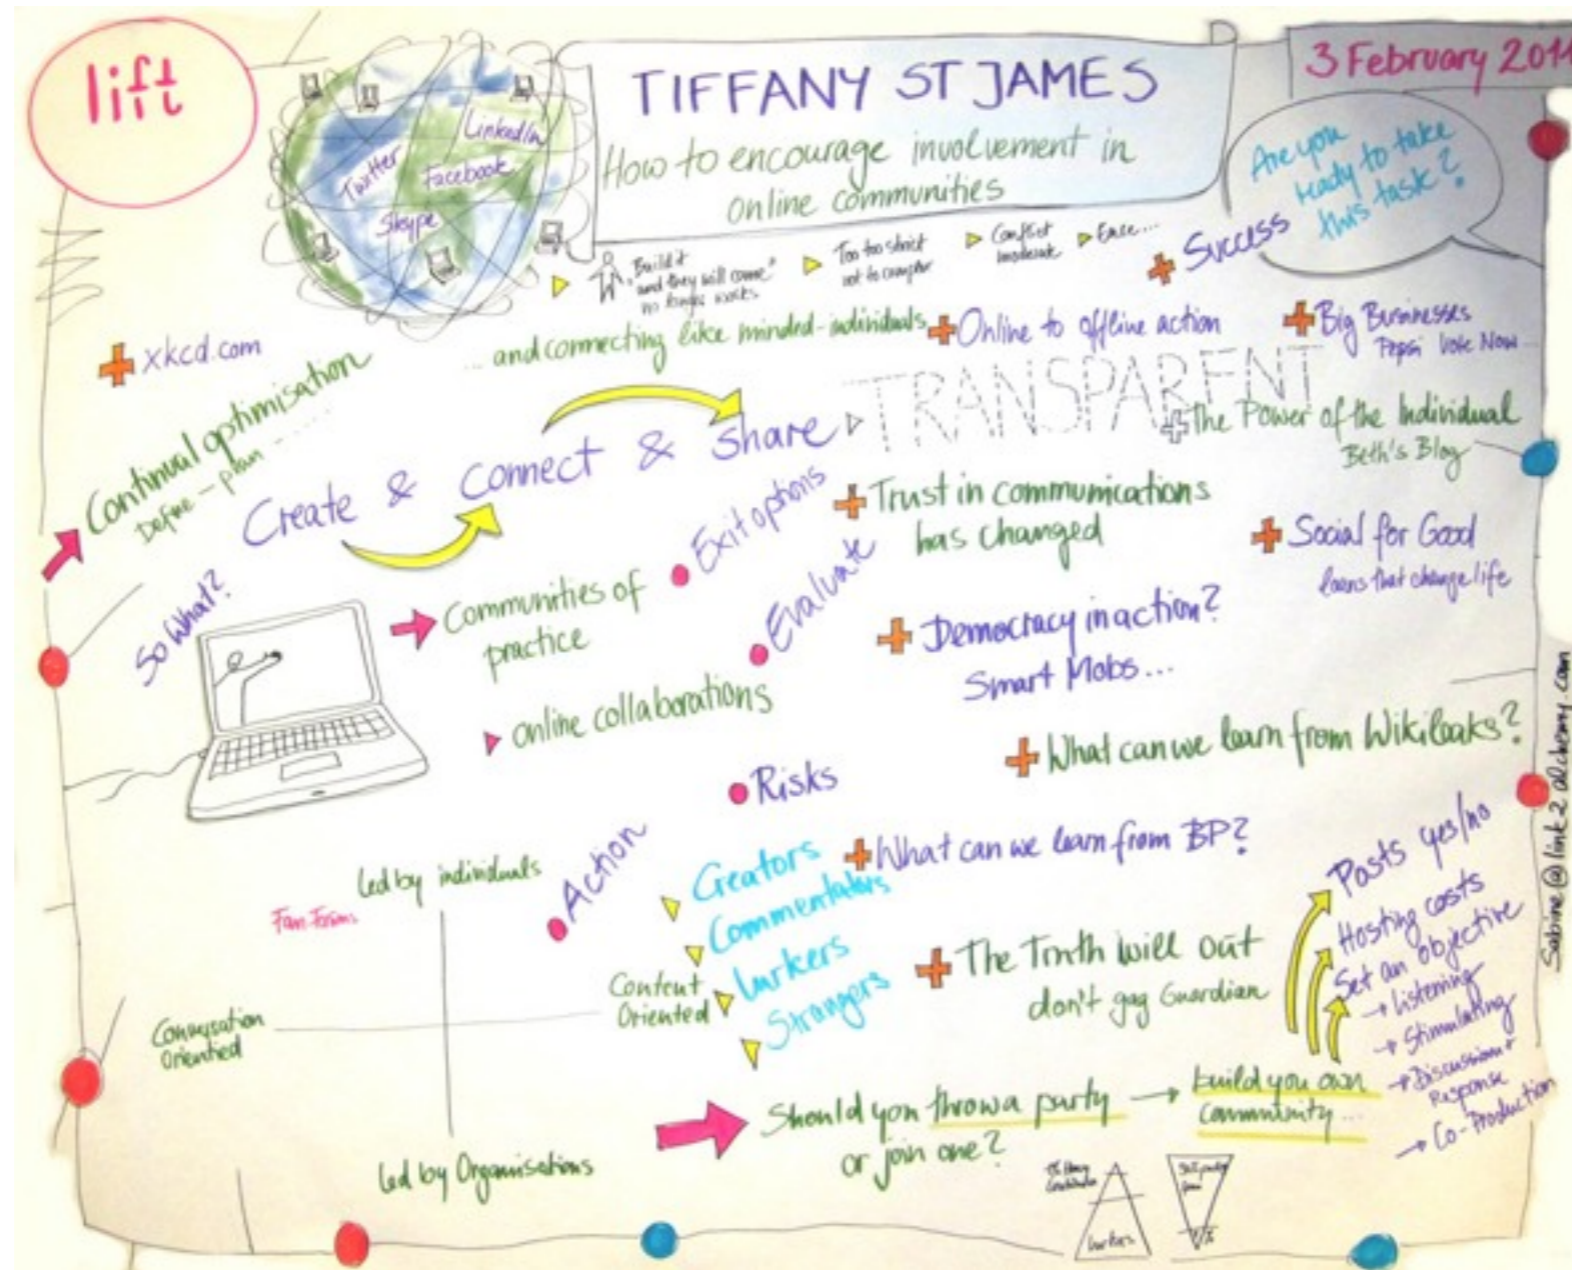 lift
TIFFANY ST JAMES
How to encourage involvement in
online communities
3 February 2011
Are you
ready to take
this task?
LinkedIn
Twitter
Facebook
Skype
"Build it
and they will come"
no longer works
Too too strict
not to
Conflict
moderate
Ease...
Success
xkcd.com
... and connecting like minded-individuals
Online to offline action
Big Businesses
Pepsi Vote Now...
Continual optimisation
Define - plan - ....
Create & connect & share
TRANSPARENT
The Power of the Individual
Beth's Blog
Exit options
Trust in communications
has changed
Social for Good
loans that change life
So What?
Communities of
practice
Evaluate
Democracy in action?
Smart Mobs...
online collaborations
What can we learn from Wikileaks?
Risks
What can we learn from BP?
Led by individuals
Action
Fan-Forums
Creators
Commentators
Lurkers
Strangers
Content
Oriented
Conversation
Oriented
The Truth will out
don't gag Guardian
Posts yes/no
Hosting costs
Set an objective
→ Listening
→ Stimulating
→ Discussion +
Response
→ Co-Production
Should you throw a party → build you own
or join one?
community...
Led by Organisations
Lurkers
Sabine@link2alchemy.com